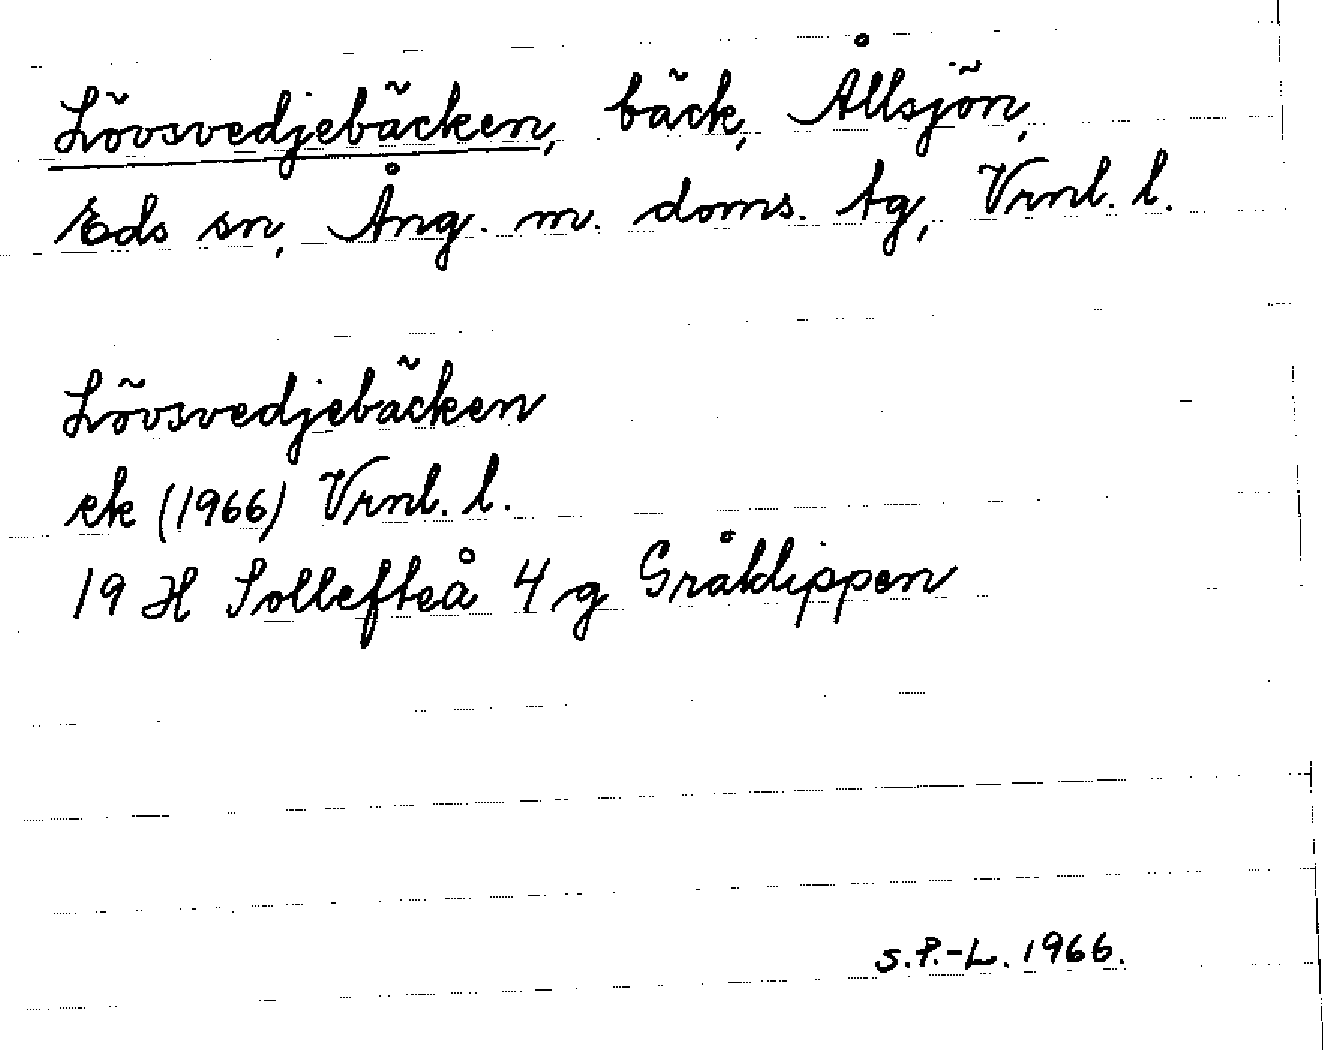 Lövsvedjebäcken, bäck, Ållsjön,
Eds sn, Ång. m. doms. tg, Vrnl. l.
Lövsvedjebäcken
ek (1966) Vrnl. l.
19 H Sollefteå 4 g Gråklippen
S.P.-L. 1966.